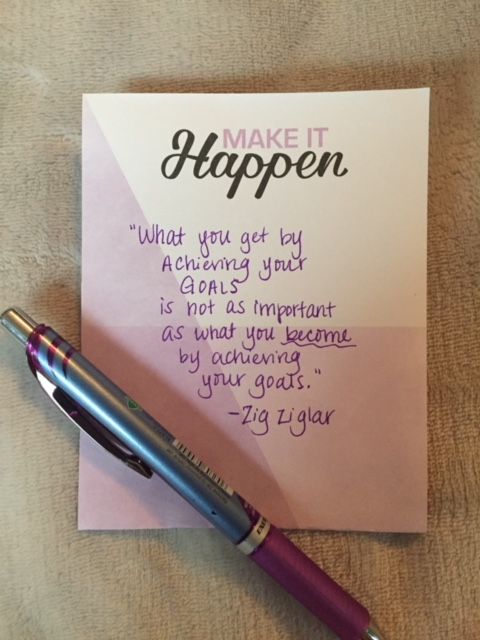 MAKE IT
Happen
"What you get by
Achieving your
GOALS
is not as important
as what you become
by achieving
your goals."
-Zig Ziglar